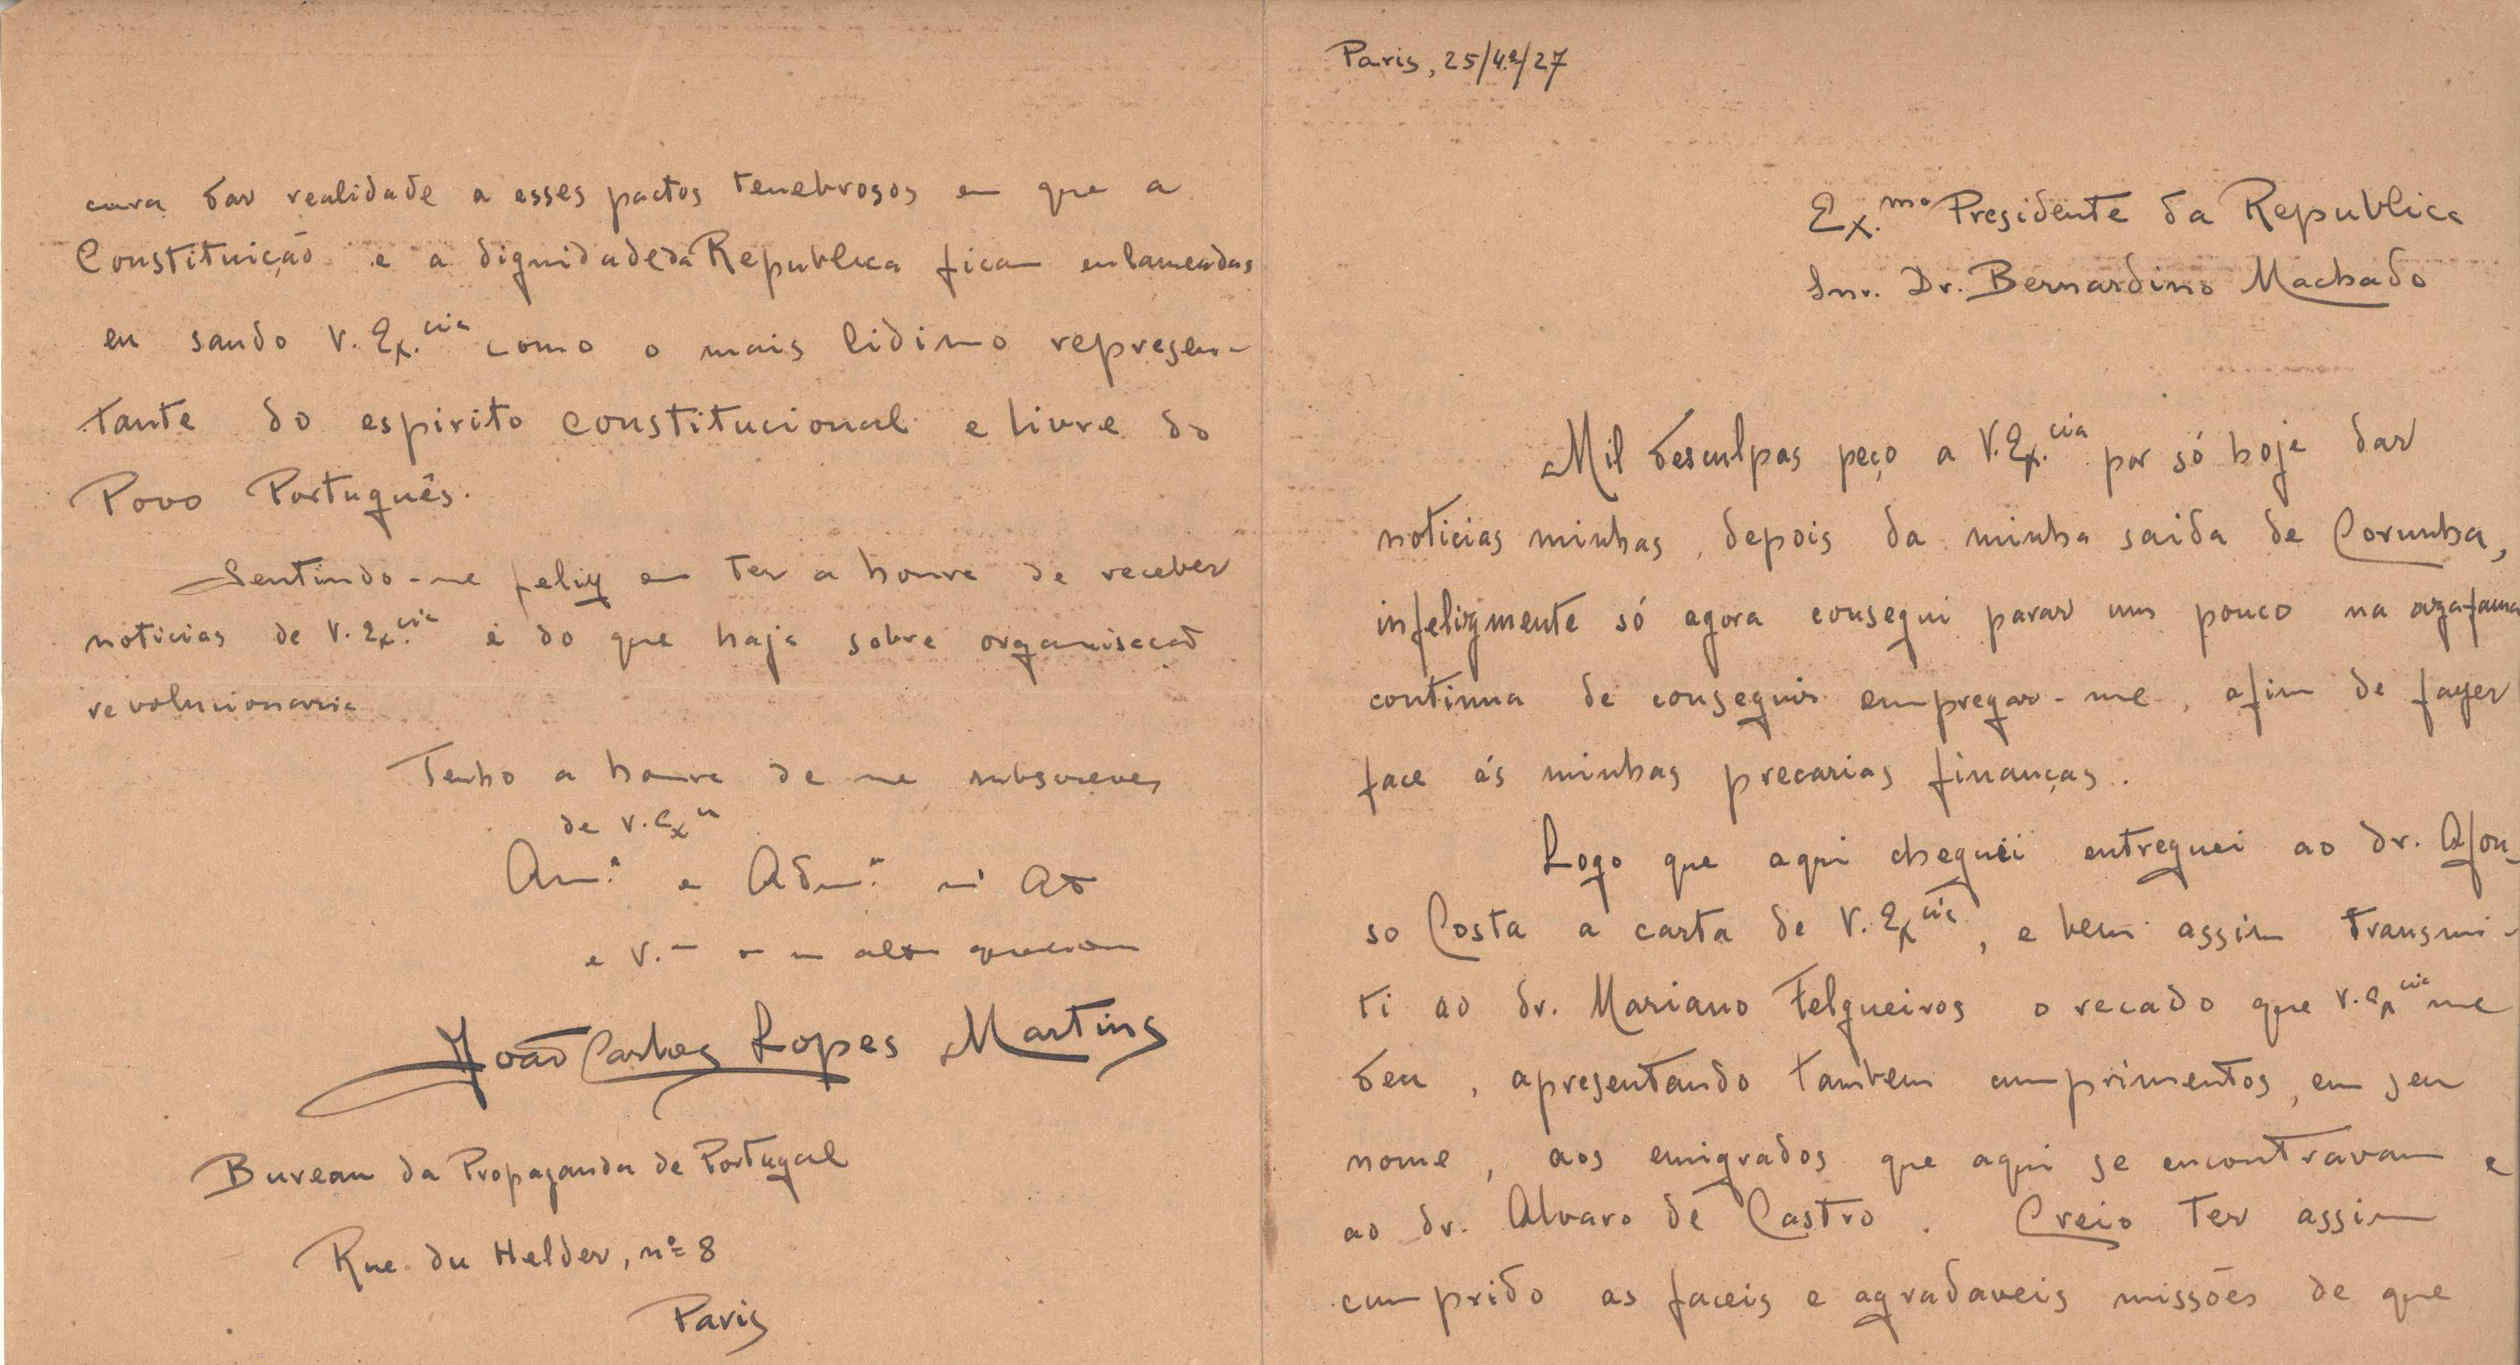 Paris, 25/4º/27
Ex.mo Presidente da Republica
Snr. Dr. Bernardino Machado
Mil desculpas peço a V. Ex.cia por só hoje dar
noticias minhas, depois da minha saida de Corunha,
infelizmente só agora consegui parar um pouco na azafama
continua de conseguir empregar-me, afim de fazer
face ás minhas precarias finanças.
Logo que aqui cheguei entreguei ao dr. Afon-
so Costa a carta de V. Ex.cia, e bem assim transmi-
ti ao dr. Mariano Felgueiros o recado que V. Ex.cia me
deu, apresentando tambem cumprimentos, em seu
nome, aos emigrados que aqui se encontravam e
ao dr. Alvaro de Castro. Creio ter assim
cumprido as faceis e agradaveis missões de que
dar realidade a esses pactos tenebrosos em que a
Constituição e a dignidade da Republica ficam enlameadas
eu saudo V. Ex.cia como o mais lidimo represen-
tante do espirito constitucional e livre do
Povo Português.
Sentindo-me feliz em ter a honra de receber
noticias de V. Ex.cia e do que haja sobre organisação
revolucionaria
Tenho a honra de me subscrever
de V. Exa
Am.º e Adm.º
João Carlos Lopes Martins
Bureau da Propaganda de Portugal
Rue du Helder, nº 8
Paris